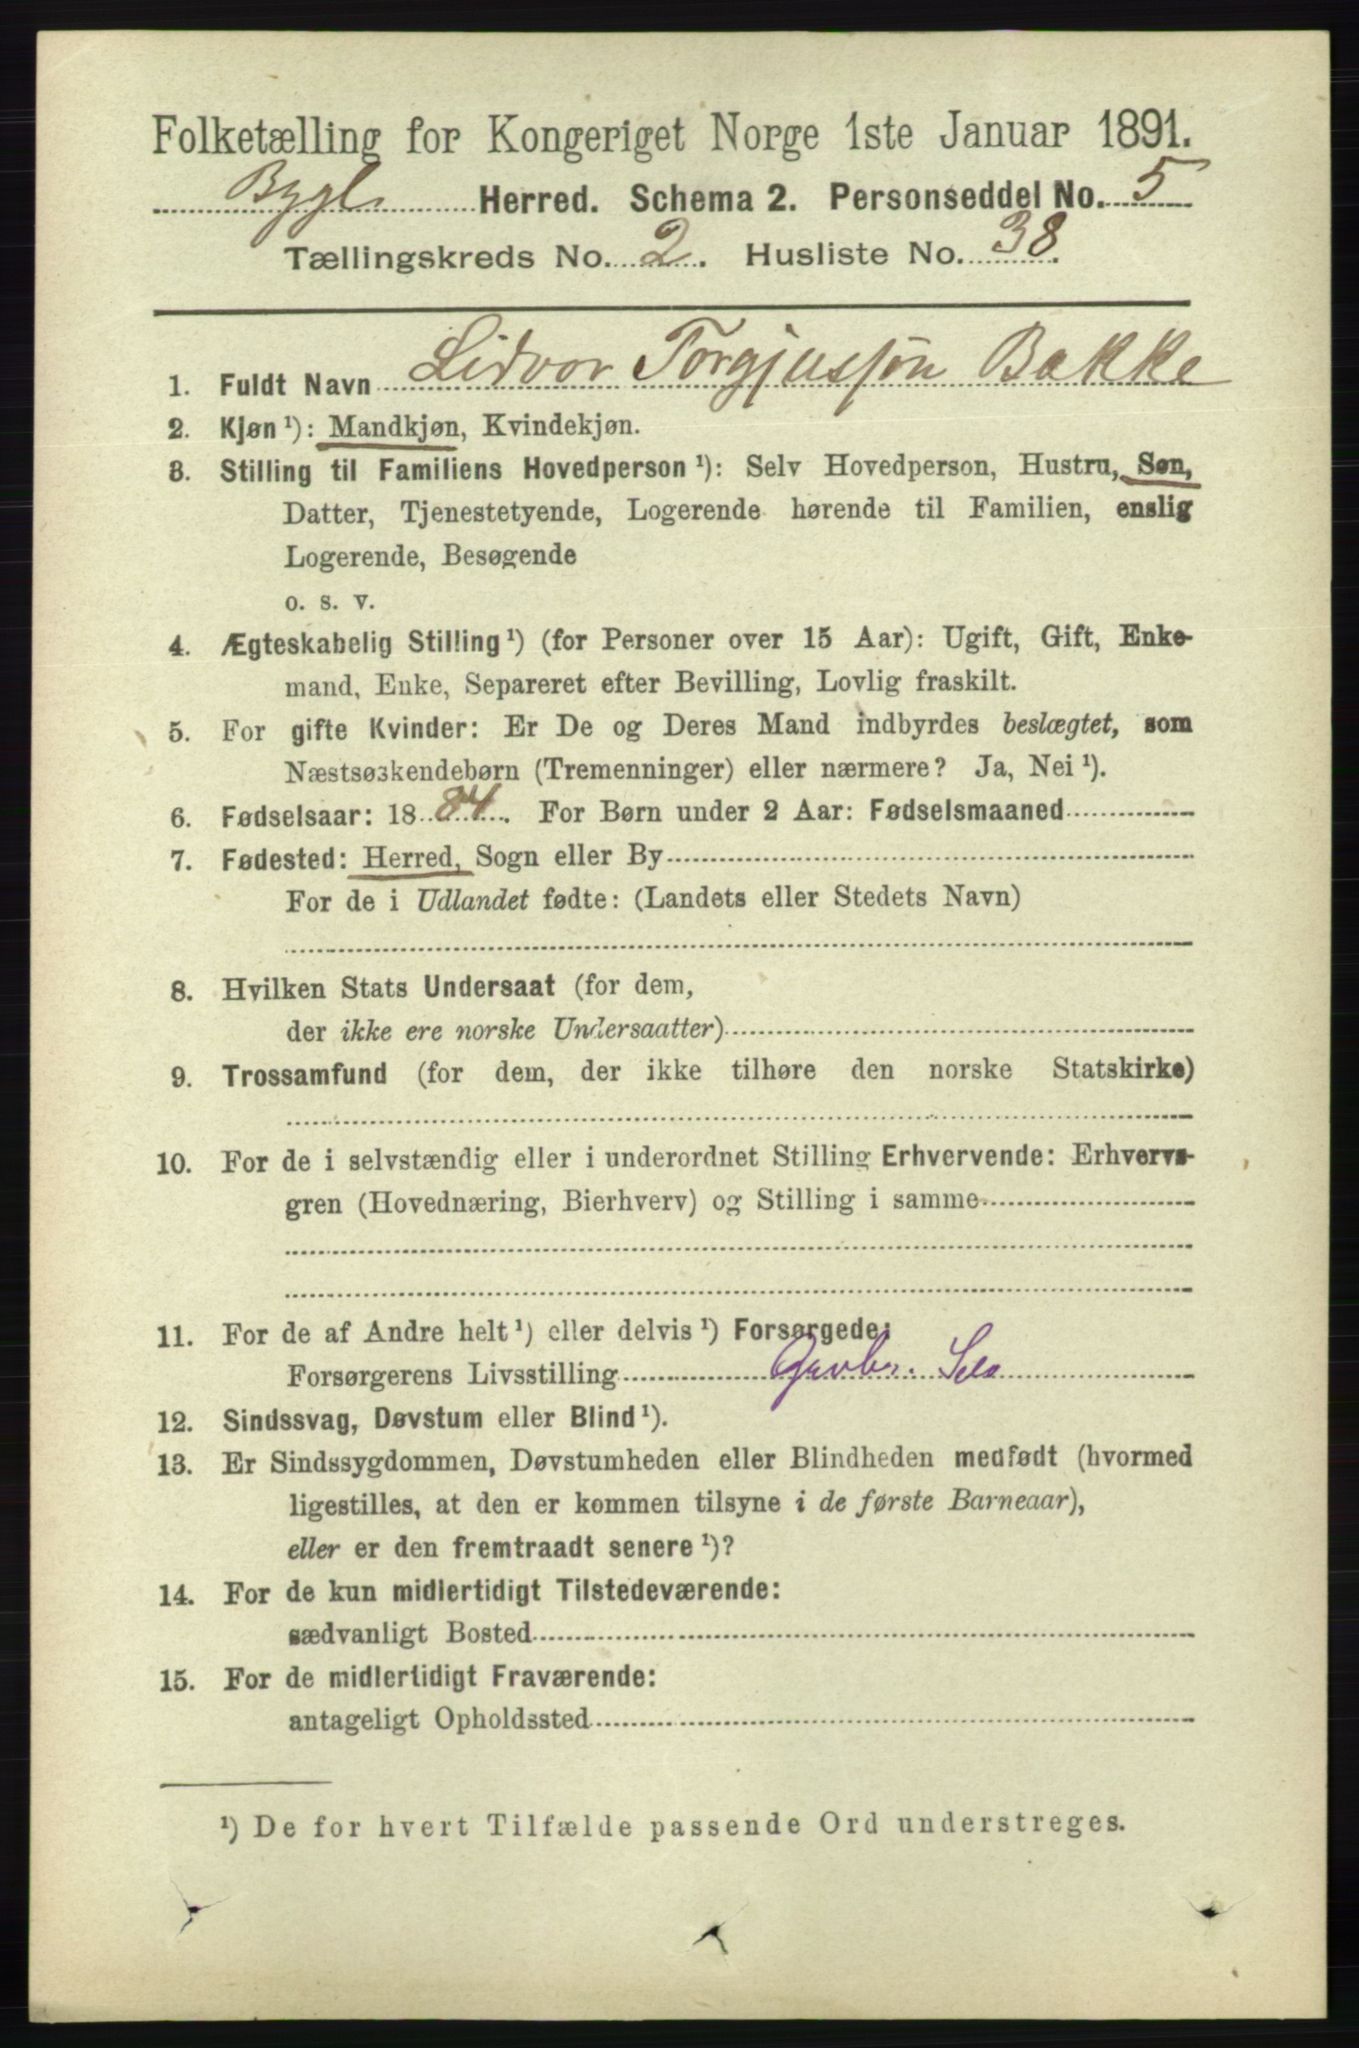 Folketælling for Kongeriget Norge 1ste Januar 1891.
Bygland Herred. Schema 2. Personseddel No. 5
Tællingskreds No. 2. Husliste No. 38.
1. Fuldt Navn Lidvor Torgjussøn Bakke
2. Kjøn ¹): Mandkjøn, Kvindekjøn.
3. Stilling til Familiens Hovedperson ¹): Selv Hovedperson, Hustru, Søn,
Datter, Tjenestetyende, Logerende hørende til Familien, enslig
Logerende, Besøgende
o. s. v.
4. Ægteskabelig Stilling ¹) (for Personer over 15 Aar): Ugift, Gift, Enke-
mand, Enke, Separeret efter Bevilling, Lovlig fraskilt.
5. For gifte Kvinder: Er De og Deres Mand indbyrdes beslægtet, som
Næstsøskendebørn (Tremenninger) eller nærmere? Ja, Nei ¹).
6. Fødselsaar: 1884. For Børn under 2 Aar: Fødselsmaaned
7. Fødested: Herred, Sogn eller By
For de i Udlandet fødte: (Landets eller Stedets Navn)
8. Hvilken Stats Undersaat (for dem,
der ikke ere norske Undersaatter)
9. Trossamfund (for dem, der ikke tilhøre den norske Statskirke)
10. For de i selvstændig eller i underordnet Stilling Erhvervende: Erhvervs-
gren (Hovednæring, Bierhverv) og Stilling i samme
11. For de af Andre helt ¹) eller delvis ¹) Forsørgede:
Forsørgerens Livsstilling
12. Sindssvag, Døvstum eller Blind ¹).
13. Er Sindssygdommen, Døvstumheden eller Blindheden medfødt (hvormed
ligestilles, at den er kommen tilsyne i de første Barneaar),
eller er den fremtraadt senere ¹)?
14. For de kun midlertidigt Tilstedeværende:
sædvanligt Bosted
15. For de midlertidigt Fraværende:
antageligt Opholdssted
¹) De for hvert Tilfælde passende Ord understreges.